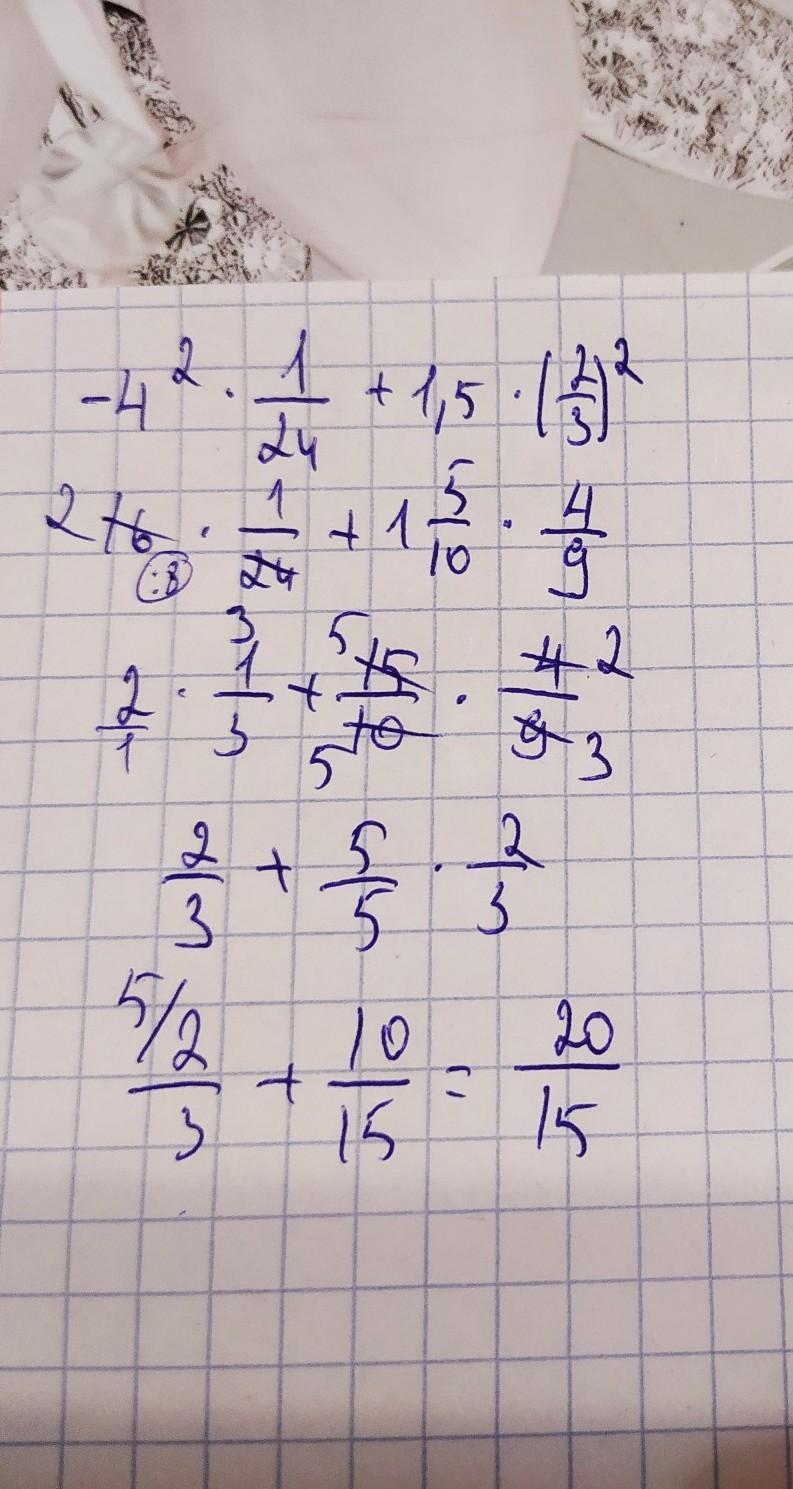 -4² · 1/24 + 1,5 · (2/3)²
2 16 · 1/24 + 1 5/10 · 4/9
:8 3
2/1 · 1/3 + 5 15/10 5 · 4/9 2 3
2/3 + 5/5 · 2/3
5/ 2/3 + 10/15 = 20/15